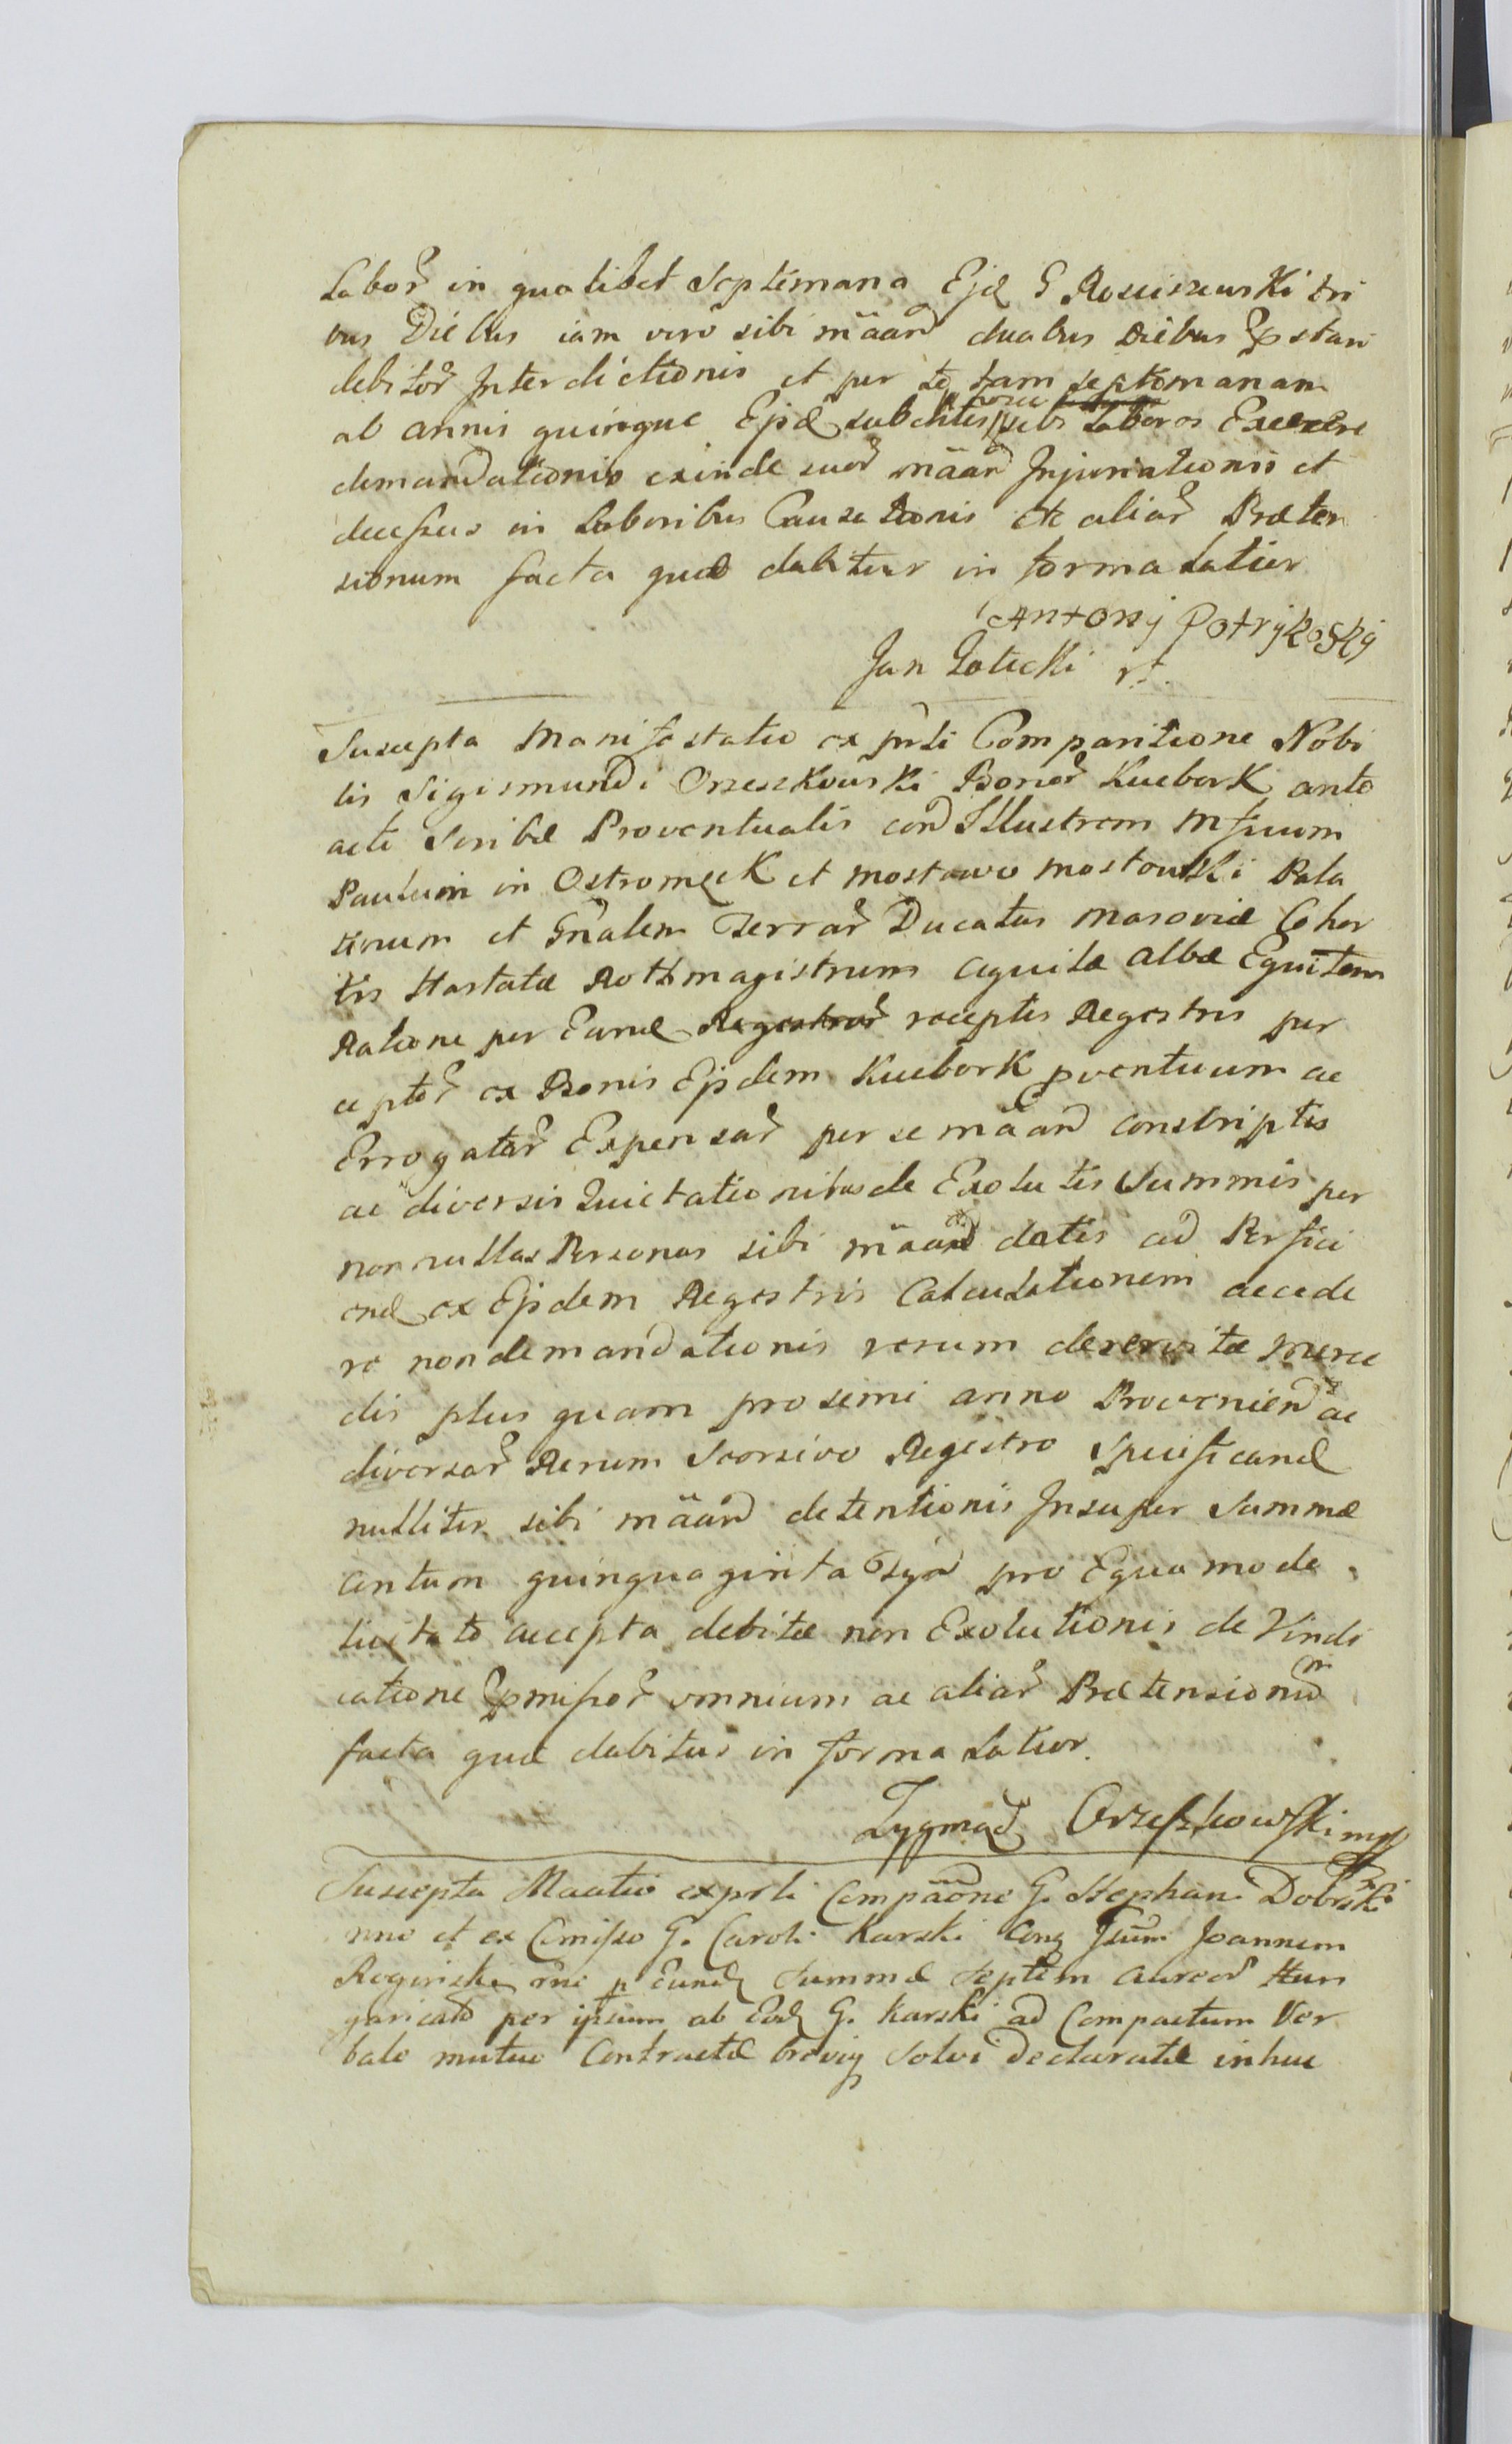 Labor in qualibet Septimana Ejd G Rosciszewski tri
bus Diebus iam vero sibi mãand duabus Diebus pstari
debitor Interdictionis et per to tam septemanam
ab annis quinque Ejsd subditis sibi Labores Exercere
demandationis exinde suor mãand Injuriationis et
decessus in Laboribus Causationis etc aliar Præten
sionum facta quæ dabitur in forma Latior
Antonij Potrykoskj
Jan Łoticki
Suscepta Manifestatio ex prsti Comparitione Nobi
lis Sigismundi Orzeszkowski Bonor Kucbork ante
acti Scribæ Proventualis cora Illustrem Mficum
Paulum in Ostromęck et Mostowo Mostowski Pala
tinum et Gnalem Terrar Ducatus Masoviæ Cohor
tis Hastatæ Rothmagistrum Aquilæ Albæ Equitem
Ratione per Eund Regestror receptis Regestris per
ceptor ex Bonis Ejsdem Kucbork pventuum ac
Errogatar Expensar per se mãand conscriptis
ac diversis Quietationibus de Exolutis Summis per
nonnullas Personas sibi mãand datis ad Perfici
end ex Ejsdem Regestris Calculationem accede
re non demandationis rerum deservitæ merce
dis plus quam pro semi anno Provenien ac
diversar Rerum Seorsivo Regestro Specificand
nulliter sibi mãand detentionis Insuper Summæ
centum quinquaginta pro Equa mode
accepta debitæ non Exolutionis de Vindi
catione pmissor omnium ac aliar Prætensionu
facta quæ dabitur in forma Latior.
Zygmad Orzeszkowski mp
Suscepta Maatio ex prsti Compãone G. Stephani Dobrski
nne et ex Comisso G. Caroli Karski Cong Gsum Joannem
Roginski rne p Eund Summæ Septem Aureor Hun
garicad per ipsum ab Eod G. Karski ad Compactum Ver
bale mutuo Contractæ breviq Solvi Declaratæ inhuc